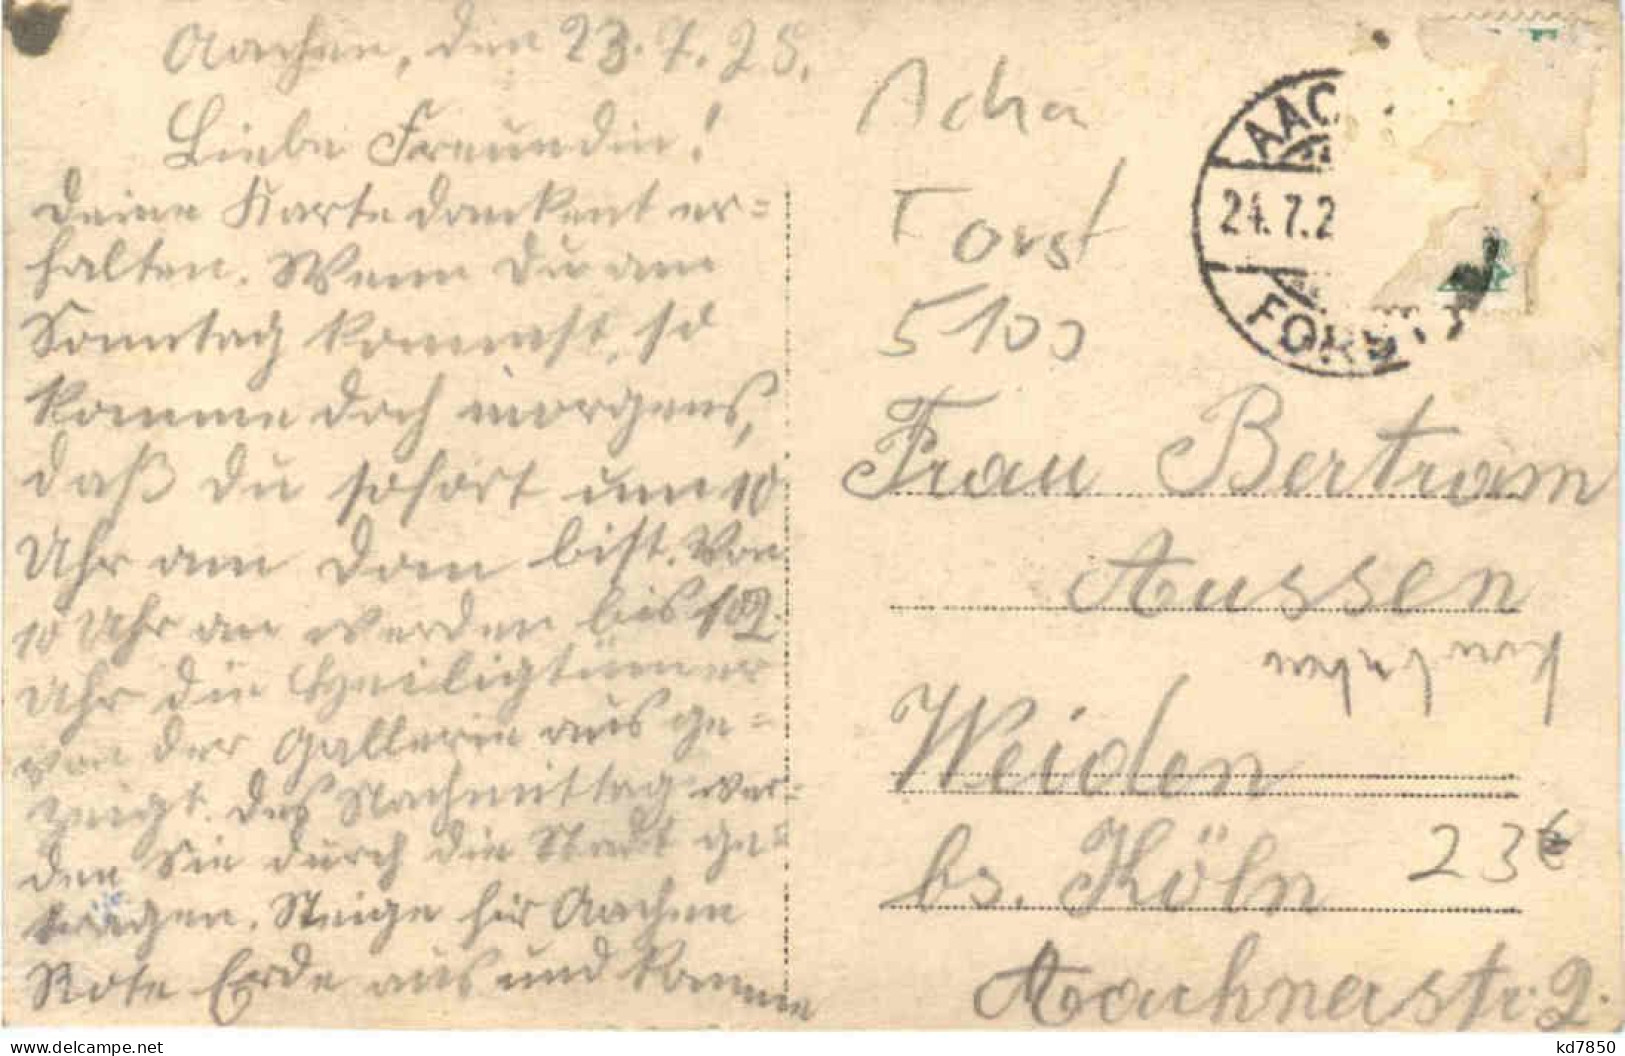 Aachen, den 23.7.25.
Liebe Freundin!
Deine Karte dankent er=
halten. Wenn Du am
Sonntag kommst, so
komme doch morgens,
daß Du sofort um 10
Uhr am Dom bist. Von
10 Uhr an werden bis 102
Uhr die Heiligtümer
von der Gallerie aus ge=
zeigt. Des Nachmittag wer=
den Sie durch die Stadt ge=
tragen. Steige hir Aachen
Rote Erde aus und komme
Acha
Forst
5100
AAC
24.7.2
FORST
Frau Bertram
Aussen
Weiden
bs. Köln
23€
Aachnerstr. 2.
kd7850